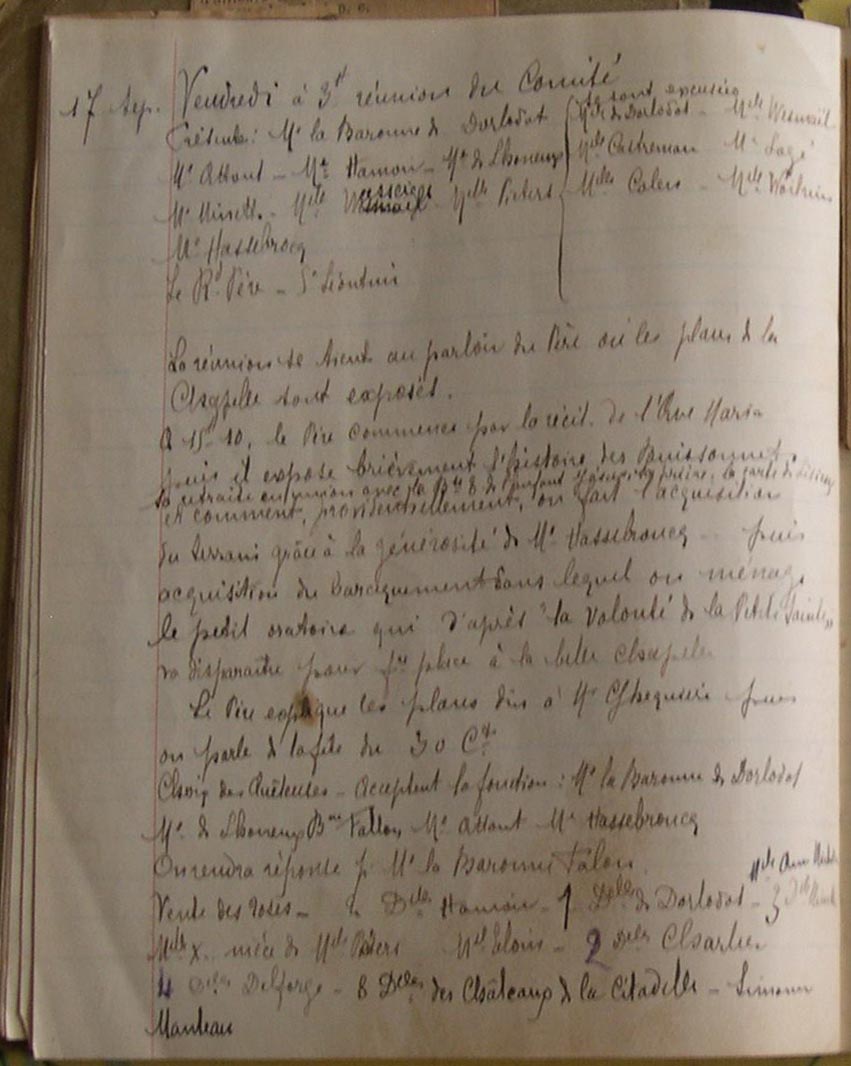 17 Sep. Vendredi à 3h réunion du Comité
Présents : Me la Baronne de Dorlodot
sont excusées
Melle de Dorlodot - Melle Wesmaël
Me Attout - Me Hamoir - Me de Lhoneux
Melle Castreman Me
Me - Melle - Melle Pieters
Melles - Melle
Me Hassebrocq
Le Rd Père - Sr
La réunion se tient au parloir du Père où les plans de la
Chapelle sont exposés.
A 15h 10, le Père commence par le récit de l'Ave Maria
puis il expose brièvement l'histoire des Buissonnets,
sa retraite en union avec la Bse de l'enfant Jésus, prière, la carte de
et comment, providentiellement, on fait l'acquisition
du terrain grâce à la générosité de Me Hassebroucq - puis
acquisition du baraquement dans lequel on ménage
le petit oratoire qui d'après "la volonté de la Petite Sainte"
va disparaître pour fre place à la belle chapelle
Le Père explique les plans dus à Mr puis
on parle de la fête du 30 Cr
Choix des Quêteuses - Acceptent la fonction : Me la Baronne de Dorlodot
Me de Lhoneux Bnne Fallon Me Attout Me Hassebroucq
On rendra réponse p. Me la Baronne Falon.
Vente des roses - 2 Delles Hamoir - 1 Delle de Dorlodot - 3 Delles
Melle
Melle X. nièce de Melle Pieters Melle Eloin - 2 Delles Charlier
4 Delles Delforge - 8 Delles des Châteaux de la Citadelle - Simonne
Manteau